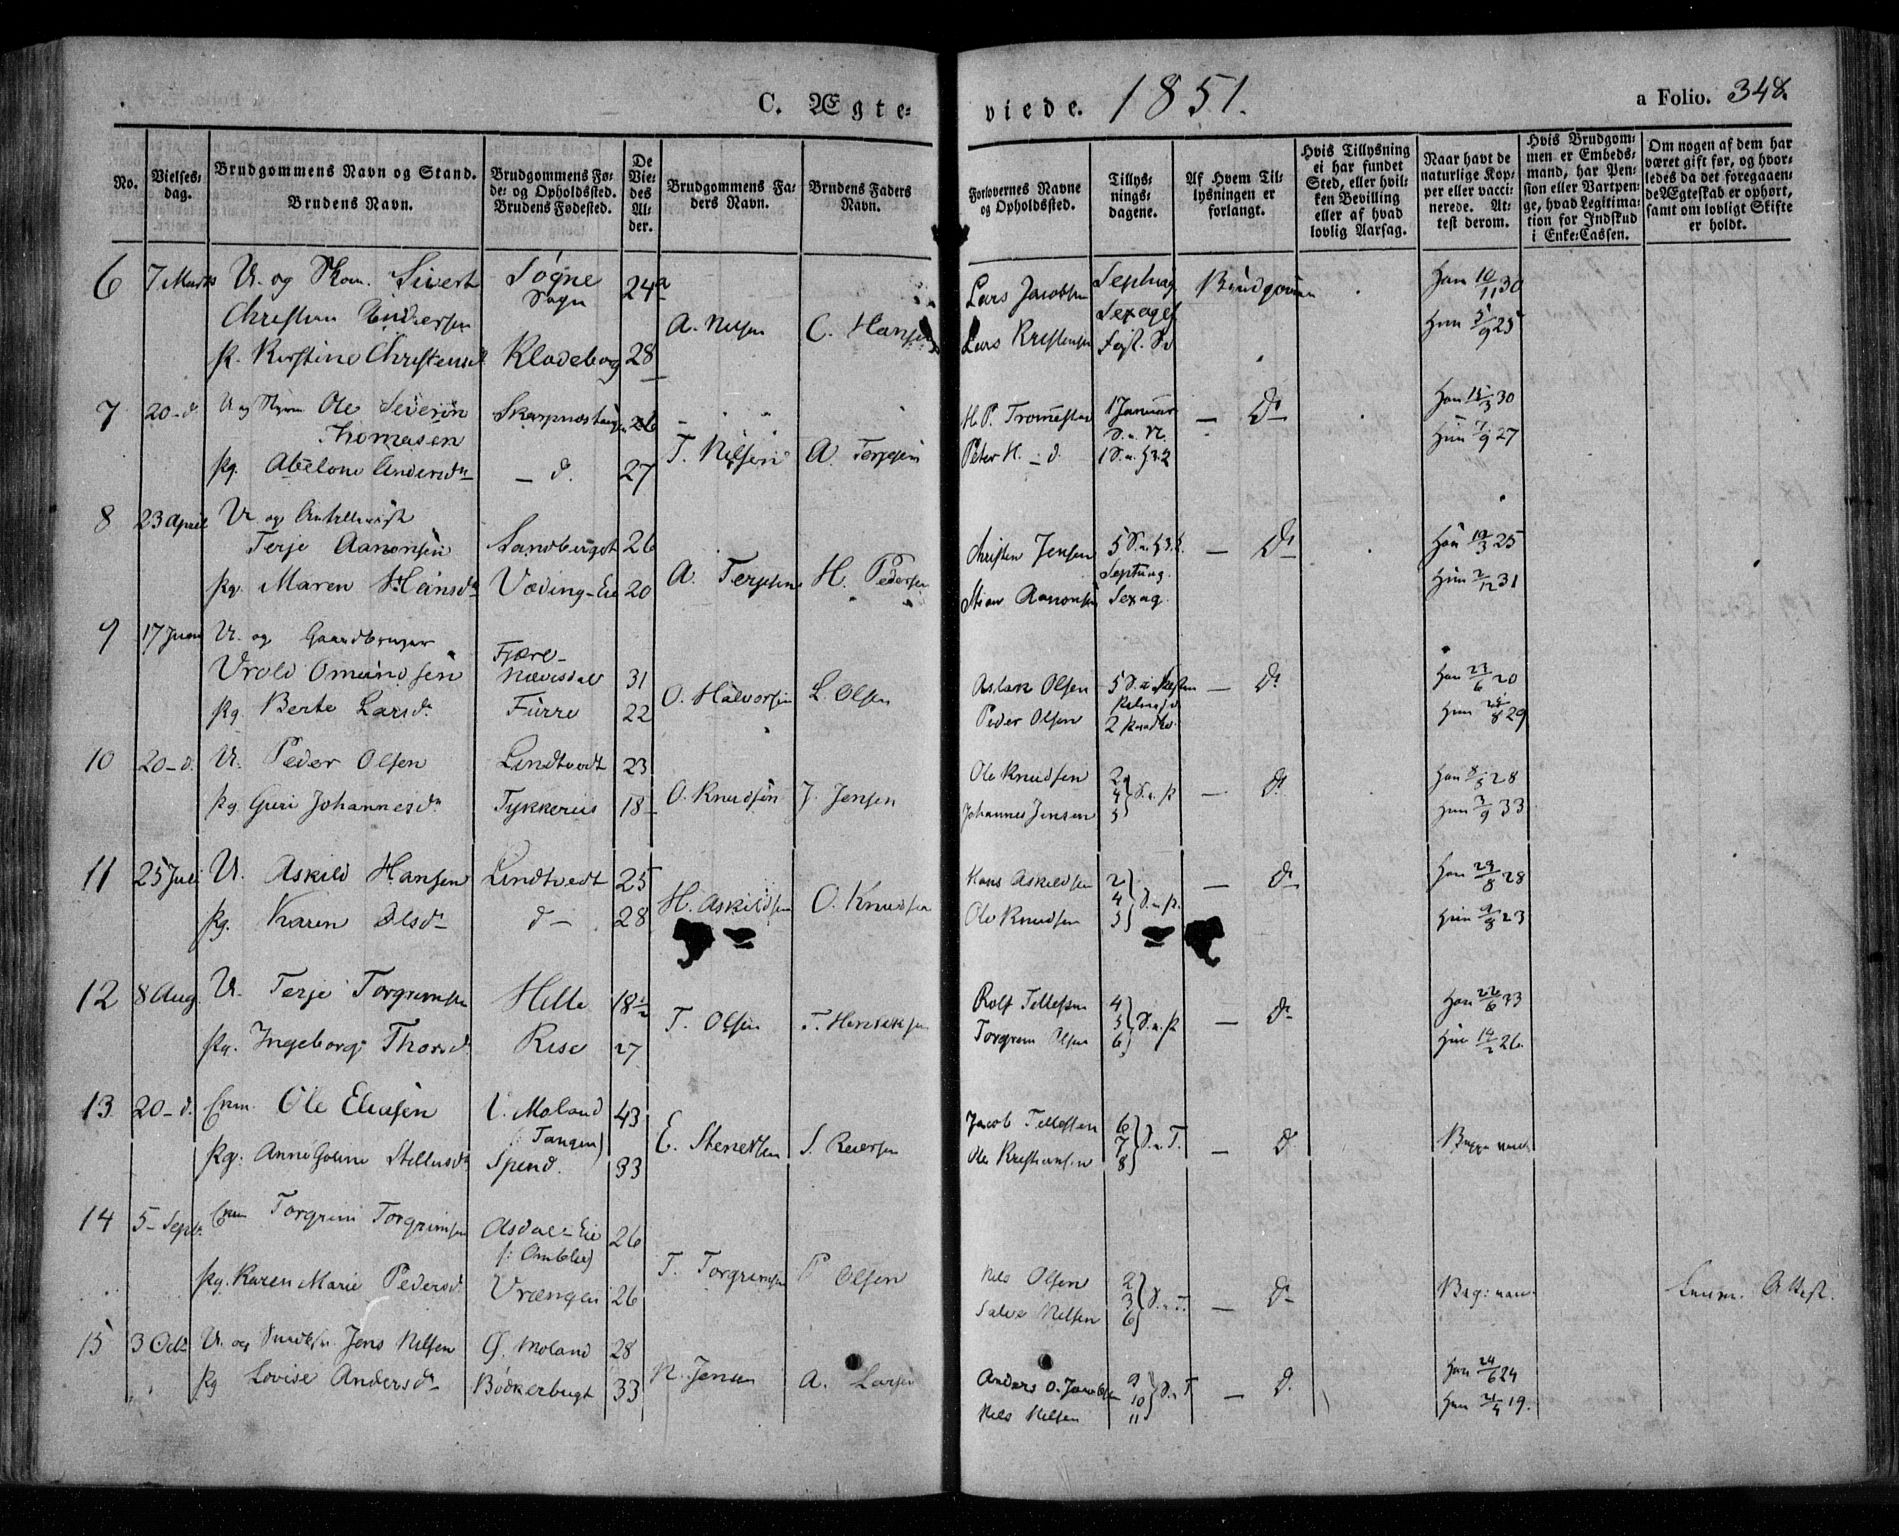 C. Ægte-
viede. 1851.
a Folio. 348.
No.
Vielses-
dag.
Brudgommens Navn og Stand.
Brudens Navn.
Brudgommens Fø-
de- og Opholdssted.
Brudens Fødested.
De
Vie-
des
Al-
der.
Brudgommens Fa-
ders Navn.
Brudens Faders
Navn.
Forlovernes Navne
og Opholdssted.
Tillys-
nings-
dagene.
Af Hvem Til-
lysningen er
forlangt.
Hvis Tillysning
ei har fundet
Sted, eller hvil-
ken Bevilling
eller af hvad
lovlig Aarsag.
Naar havt de
naturlige Kop-
per eller vacci-
nerede. At-
test derom.
Hvis Brudgom-
men er Embeds-
mand, har Pen-
sion eller Vartpen-
ge, hvad Legitima-
tion for Indskud
i Enke-Cassen.
Om nogen af dem har
været gift før, og hvor-
ledes da det foregaaen-
de Ægteskab er ophørt,
samt om lovligt Skifte
er holdt.
6 7 Marts U. og Skom. Sivert Søgne 24
Sogn
Christian Andersen
A. Nilsen C. Hansen
P. Kirstine Christensd. Kladeborg 28
Lars Jacobsen Septuag Brudgommen Han 10/11 30
Sexages
Lars Kristensen Fast. Hun 5/9 25
7 20 d. U og Ole Severin Skarpnæstangen 26
Thomasen
T. Nilsen A. Terjesen
Pg. Abelone Andersd. — d. 27
H. P. Tromøstad 1 Januar — Do Han 15/3 30
S. n. N.
Peter H. — d. 1 S. n. H3.K Hun 7/9 27
8 23 April U. og
Terje Aanonsen Sandberget 26
A. Terjesen H. Pedersen
Pg. Maren Hansd. Væding-Eie 20
Christen Jensen 5 S. n. H3.K. — Do Han 10/3 25
Septuag.
Aanonsen Sexag. Hun 2/12 31
9 17 Juni U. og Gaardbruger
Fjære-
Vrold Omundsen Nævisdal 31
O. Halvorsen L. Olsen
Pg. Berte Larsd. Furre 22
Aslak Olsen 5 S. i Fasten — Do Han 23/6 20
Palmesd.
Peder Olsen 2 Hun 25/8 29
10 20 — d. U. Peder Olsen Lindtvedt 23
O. Knudsen J. Jensen
Pg Guri Johannesd. Tykkeriis 18
Ole Knudsen 2 4 5 } S. n. P — Do Han 8/5 28
Johannes Jensen Hun 3/9 33
11 25 Juli U. Askild Hansen Lindtvedt 25
H. Askildsen O. Knudsen
Pg. Karen Olsd. d — 28
Hans Askildsen 2 4 5 } S. n. P. — Do Han 23/8 28
Ole Knudsen Hun 9/8 23
12 8 Aug. U. Terje Torgrimsen Helle 18 1/2
T. Olsen T. Henriksen
Pg. Ingeborg Thorsd. Rise 27
Rolf Tellefsen 4 5 6 } S. n. P — Do Han 26/6 33
Torgrim Olsen Hun 10/2 26.
13 20 — d. Enkm. Ole Eliasen Ø. Moland 43
(: Tangen)
E. Stenersen S. Reiersen
Pg. Anne Sillesd. Spend. 33
Jacob Tellefsen 6 7 8 } S. n. T. — Do
Ole Kristiansen Begge vac.
14 5 Septr. Enkm Torgrim Torgrimsen Asdal-Eie 26
T. Torgrimsen P. Olsen
Pg. Karen Marie Pedersd. Vrængen 26
Nils Olsen 2 3 6 } S. n. T. — Do Beg: vac. Attest.
Salve Nilsen
15 3 Octb U. og Jens Nilsen Ø. Moland 28
N. Jensen A. Larsen
Pg Lovise Andersd. Bødkerbugt 33
Anders O. Jacobsen 9 10 11 } S. n. T — Do Han 24/6 24
Nils Nilsen Hun 21/4 19.